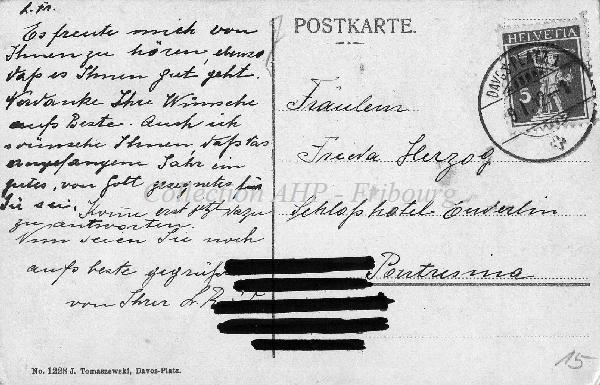 L. Fr.
Es freute mich von
Ihnen zu hören, ebenso
daß es Ihnen gut geht.
Verdanke Ihre Wünsche
aufs Beste. Auch ich
wünsche Ihnen, daß das
angefangene Jahr ein
gutes, von Gott gesegnetes für
Sie sei. Komme erst jetzt dazu
zu antworten.
Nun seien Sie noch
aufs beste gegrüßt
von Ihrer L.
No. 1228 J. Tomaszewski, Davos-Platz.
POSTKARTE.
HELVETIA
5
DAVOS-PLATZ
Fräulein
Frieda Herzog
Schloßhotel Enderlin
Pontresina
15
Collection AHP - Fribourg